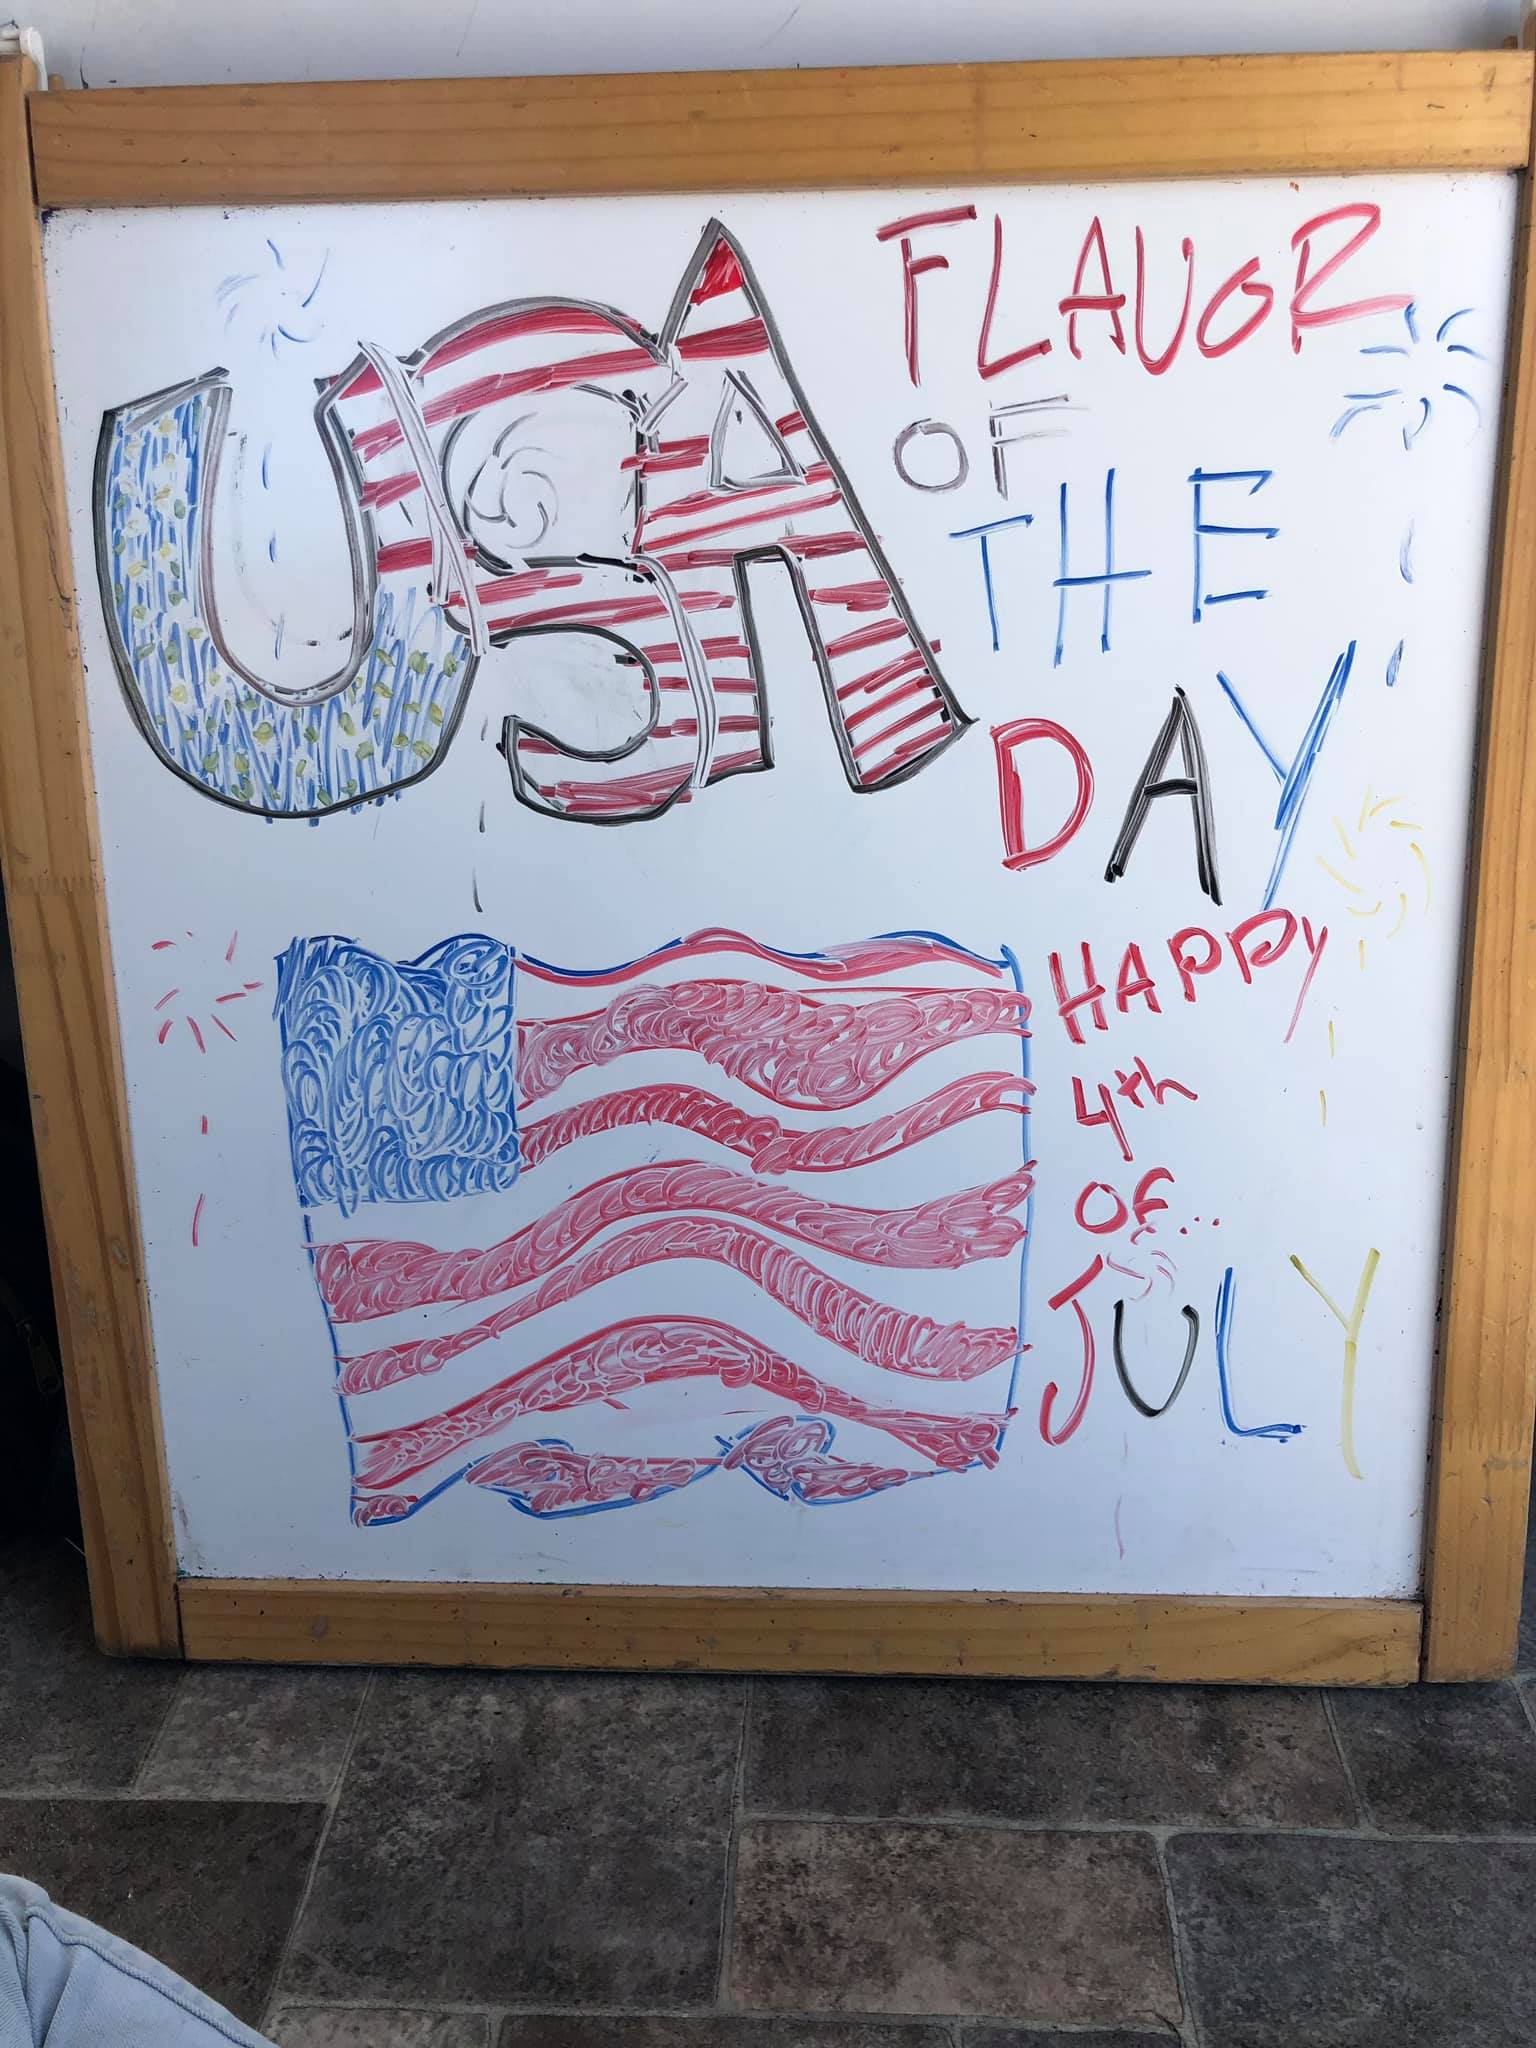 USA
FLAVOR
OF
THE
DAY
HAPPY
4th
OF...
JULY